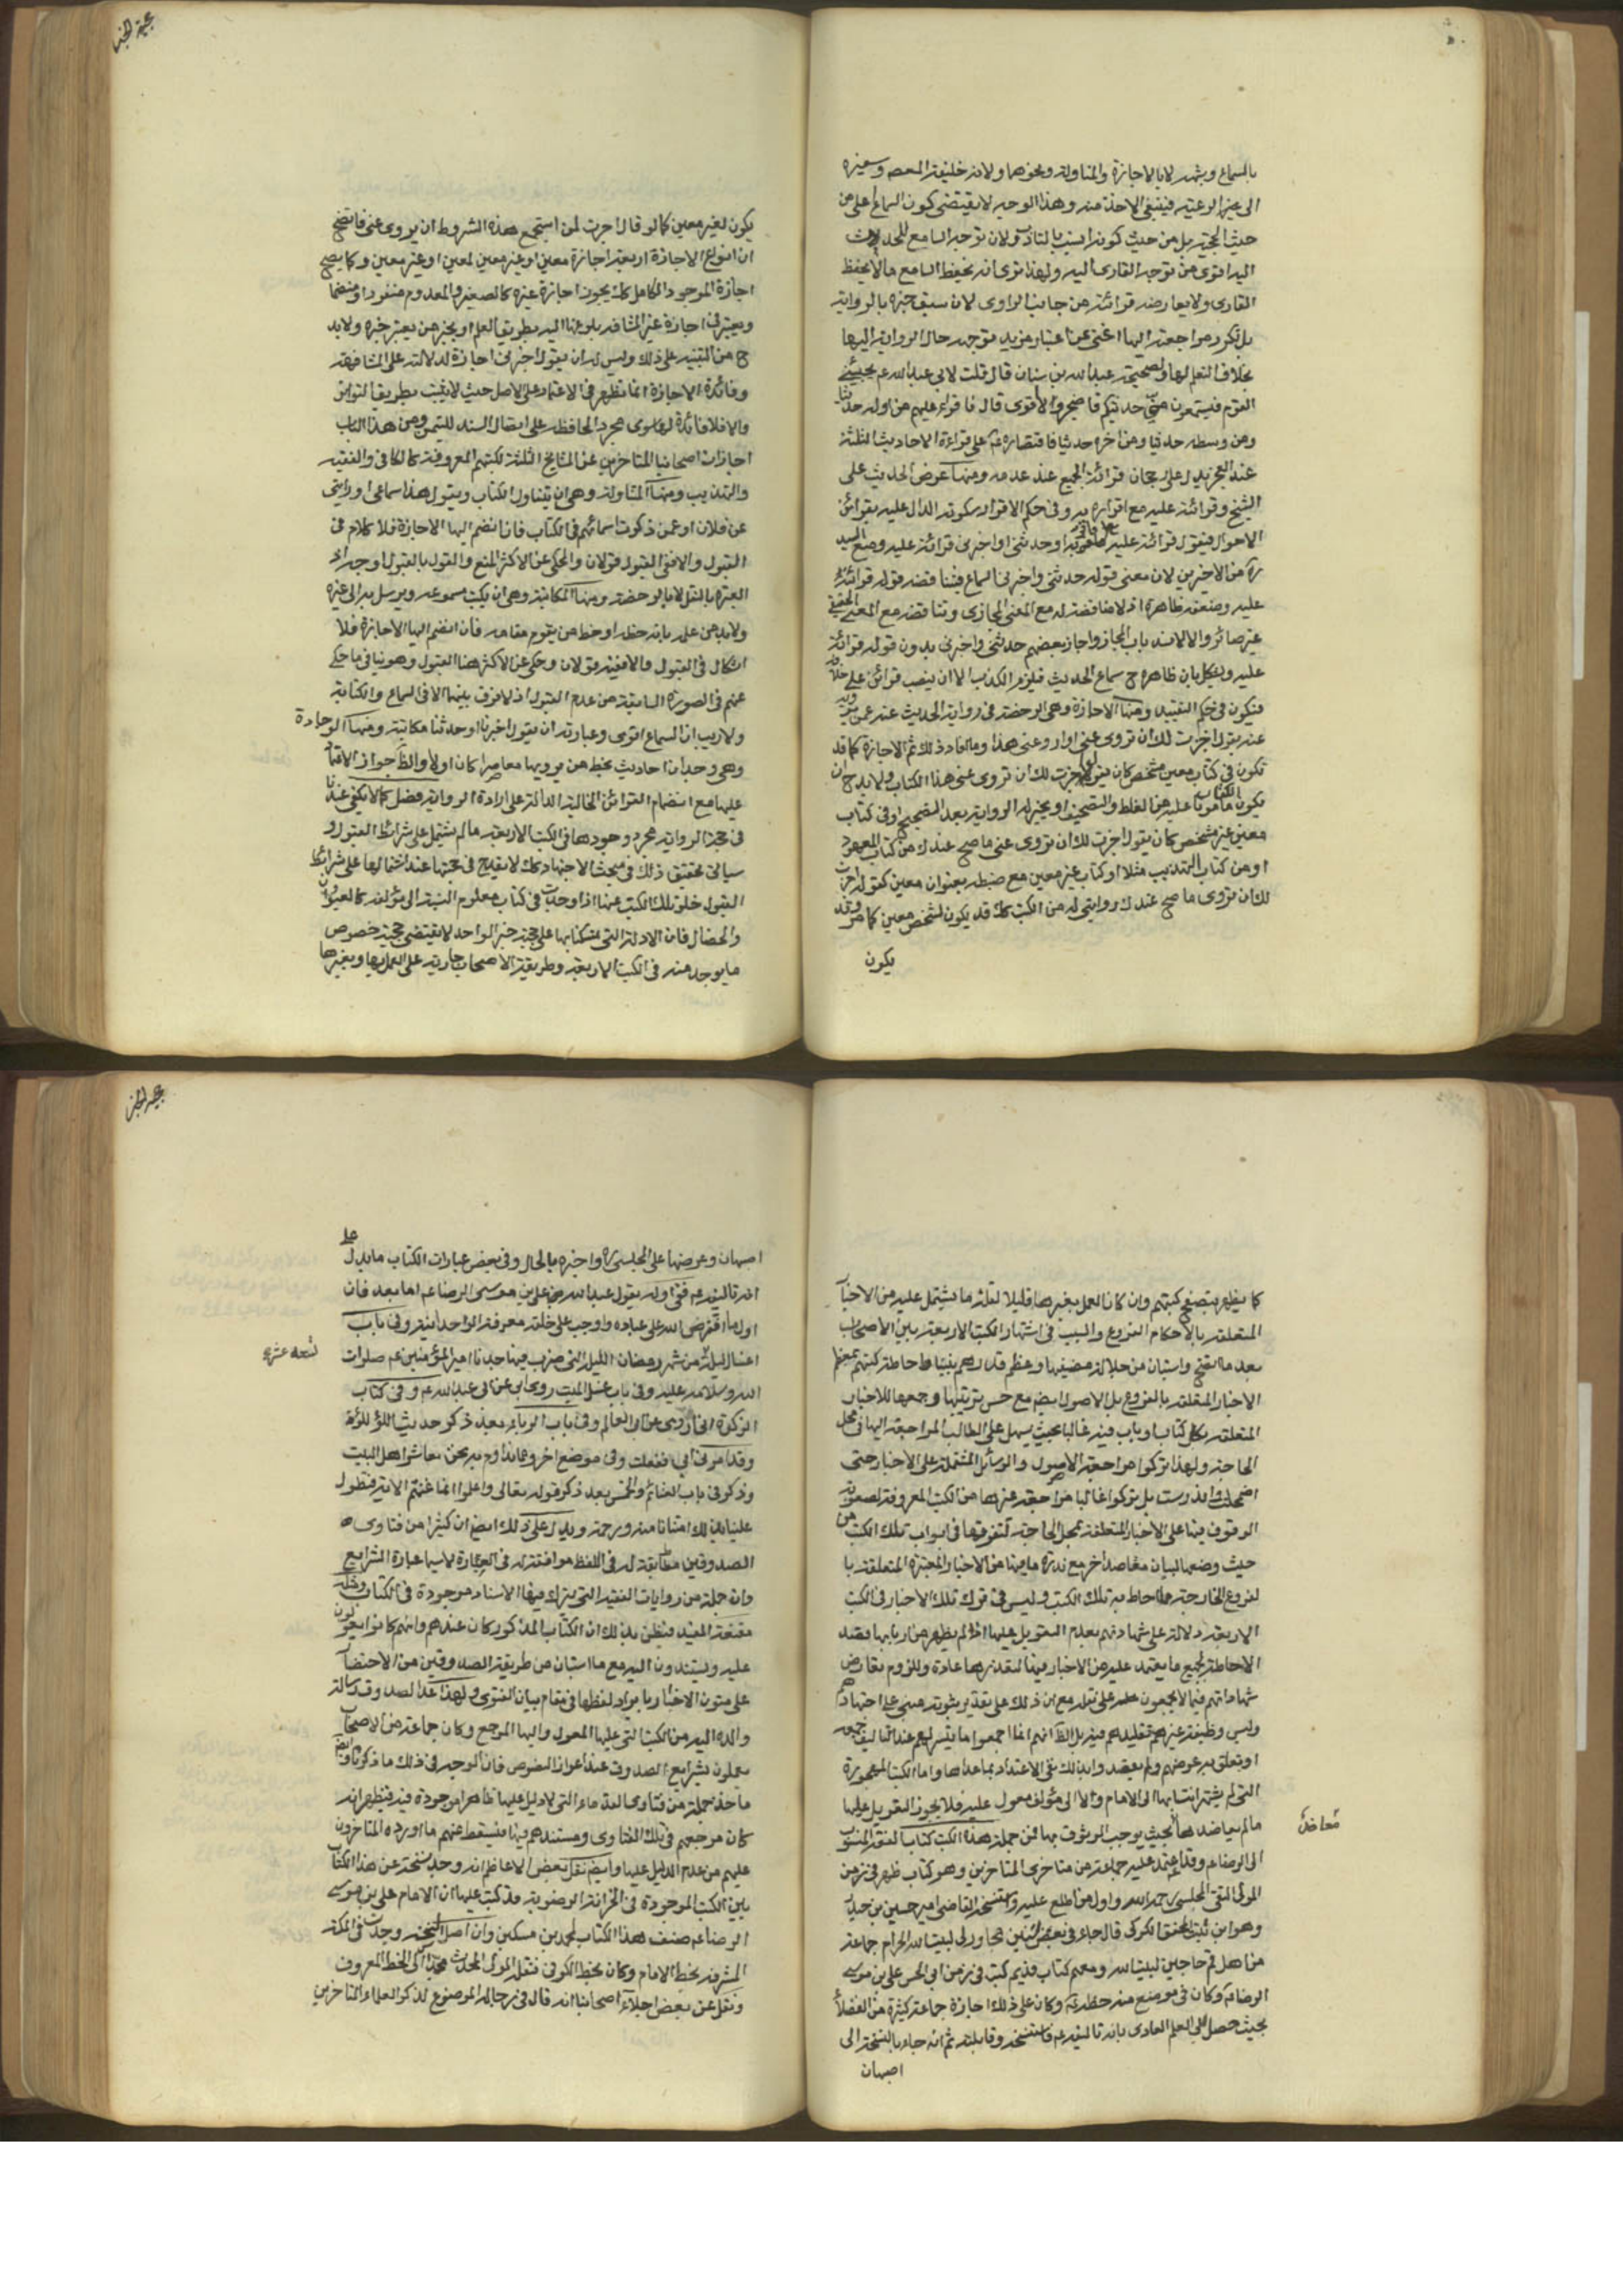 بالسماع وشبهه لا بالاجازة والمناولة ونحوهما ولانه خليفة المعصوم وسفيره
الى الرعية فينبغى الاخذ منه وهذا الوجه لا يقتضى كون السماع اعلى من
حيث الحجية بل من حيث كونه انسب بالتأدب ولان توجه السامع للحديث
اليه اقوى من توجه القارى اليه ولهذا ترى انه يحفظ السامع ما لا يحفظ
القارى ولا يعارضه قرائته من جانب الراوى لان سبق خبره بالرواية
بل تكرر مراجعته اليها اغنى عن اعتبار مزيد توجهه حال الرواية اليها
بخلاف المتعلم لها ولصحيحة عبد الله بن سنان قال قلت لابى عبد الله ع يجيئنى
القوم فيستمعون منى حديثكم فاضجر ولا اقوى قال فاقرأ عليهم من اوله حديثا
ومن وسطه حديثا ومن اخره حديثا فاقتصاره ع على قراءة الاحاديث الثلثة
عند العجز يدل على رجحان قرائة الجميع عند عدمه ومنها عرض الحديث على
الشيخ وقرائته عليه مع اقراره به وفى حكم الاقرار سكوته الدال عليه بقرائن
الاحوال فيقول قرائة عليه فاقر به او حدثنى او اخبرنى قرائة عليه ومنع السيد
ره من الاخيرين لان معنى قوله حدثنى واخبرنى السماع فيناقضه قوله قرائة
عليه وضعفه ظاهرة اذ لا مناقضة له مع المعنى المجازى وتناقضه مع المعنى الحقيقى
غير ضائر والا لانسد باب المجاز واجاز بعضهم حدثنى واخبرنى بدون قوله قرائة
عليه ويشكل بان ظاهره ح سماع الحديث فيلزم الكذب الا ان ينصب قرائن على خلافه
فيكون فى حكم التقييد ومنها الاجازة وهى الرخصة فى رواية الحديث عنه عمن يرويه
عنه بقوله اجزت لك ان تروى عنى او ارو عنى هذا وما افاد ذلك ثم الاجازة كما قد
تكون فى كتاب معين مشخص كان يقول اجزت لك ان تروى عنى هذا الكتاب ولا بد ح ان
يكون الكتاب مأمونا عليه من الغلط والتصحيف او يجيز له الرواية بعد التصحيح او فى كتاب
معين غير مشخص كان يقول اجزت لك ان تروى عنى ما صح عندك من كتاب المعهود
او من كتاب التهذيب مثلا او كتاب غير معين مع ضبطه بعنوان معين كقوله اجزت
لك ان تروى ما صح عندك روايتى له من الكتب كك قد يكون لشخص معين كما مر وقد
يكون
حجية الخبر
يكون لغير معين كما لو قال اجزت لمن استجمع هذه الشروط ان يروى عنى فاتضح
ان انواع الاجازة اربعة اجازة معين او غير معين لمعين او غير معين وكما يصح
اجازة الموجود الكامل كك يجوز اجازة غيره كالصغير والمعدوم منفردا او منضما
ويعتبر فى اجازة غير المشافه بلوغها اليه بطريق العلم او بخبر من يعتبر خبره ولا بد
ح من التنبيه على ذلك وليس له ان يقول اخبرنى اجازة لدلالته على المشافهة
وفائدة الاجازة انما تظهر فى الاعتماد على الاصل حيث لا يثبت بطريق التواتر
والا فلا فائدة لها سوى مجرد المحافظة على اتصال السند للتيمن ومن هذا الباب
اجازات اصحابنا المتاخرين عن المشايخ الثلثة لكتبهم المعروفة كالكافى والفقيه
والتهذيب ومنها المناولة وهى ان يتناول الكتاب ويقول هذا سماعى او روايتى
عن فلان او عمن ذكرت اسمائهم فى الكتاب فان انضم اليها الاجازة فلا كلام فى
القبول والا ففى القبول قولان والمحكى عن الاكثر المنع والقول بالقبول اوجه اذ
العبرة بالنقل لا بالرخصة ومنها المكاتبة وهى ان يكتب مسموعه ويرسل به الى غيره
ولا بد من علمه بانه خطه او خط من يقوم مقامه فان انضم اليها الاجازة فلا
اشكال فى القبول والا ففيه قولان وحكى عن الاكثر هنا القبول وهو ينافى ما حكى
عنهم فى الصورة السابقة من عدم القبول اذ لا فرق بينهما الا فى السماع والكتابة
ولا ريب ان السماع اقوى وعبارته ان يقول اخبرنا او حدثنا مكاتبة ومنها الوجادة
وهى وجدان احاديث بخط من يرويها معاصرا كان او لا والظ جواز الاعتماد
عليها مع انضمام القرائن الحالية الدالة على ارادة الرواية فضل كما لا يكفى عندنا
فى حجية الرواية مجرد وجودها فى الكتب الاربعة ما لم يشتمل على شرائط القبول و
سياتى تحقيق ذلك فى مبحث الاجتهاد كك لا يقدح فى حجيتها عند اشتمالها على شرائط
القبول خلو تلك الكتب عنها اذا وجدت فى كتاب معلوم النسبة الى مؤلفه كالعيون
والخصال فان الادلة التى تمسكنا بها على حجية خبر الواحد لا يقتضى حجية خصوص
ما يوجد منه فى الكتب الاربعة وطريقة الاصحاب جارية على العمل بها وبغيرها
كما يظهر بتصفح كتبهم وان كان العمل بغيرها قليلا لقلة ما يشتمل عليه من الاخبار
المتعلقة بالاحكام الفروع والسبب فى اشتهار الكتب الاربعة بين الاصحاب
بعد ما اتضح واستبان من جلالة مصنفيها وعظم قدرهم بيننا احاطة كتبهم بمعظم
الاخبار المتعلقة بالفروع بل الاصول ايضا مع حسن ترتيبها وجمعها للاخبار
المتعلقة بكل كتاب او باب فيه غالبا بحيث يسهل على الطالب المراجعة اليها فى محل
الحاجة ولهذا تركوا مراجعة الاصول والرسائل المشتملة على الاخبار حتى
اضمحلت واندرست بل تركوا غالبا مراجعة غيرها من الكتب المعروفة لصعوبة
الوقوف فيها على الاخبار المتعلقة بمحل الحاجة لتفرقها فى ابواب تلك الكتب من
حيث وضعها لبيان مقاصد اخر مع ندرة ما فيها من الاخبار المعتبرة المتعلقة با
لفروع الخارجة عما احاط به تلك الكتب وليس فى ترك تلك الاخبار فى الكتب
الاربعة دلالة على شهادتهم بعدم التعويل عليها اذ لم يظهر من اربابها قصد
الاحاطة بجميع ما يعتمد عليه من الاخبار فيها لتعذرها عادة وللزوم تعارض
شهاداتهم فيما لا يجمعون على نقله مع ان ذلك على تقدير ثبوته مبنى على اجتهادهم
وليس وظيفة غيرهم تقليدهم فيه بل الظ انهم انما جمعوا ما تيسر لهم عند التاليف جمعه
او تعلق به غرضهم ولم يقصدوا بذلك نفى الاعتداد بما عداها واما الكتب المهجورة
التى لم يشتهر انتسابها الى الامام ولا الى مؤلف معول عليه فلا يجوز التعويل عليها
ما لم يعاضدها بحيث يوجب الوثوق بها فمن جملة هذه الكتب كتاب الفقه المنسوب
معاضد
الى الرضا ع وقد اعتمد عليه جماعة من متاخرى المتاخرين وهو كتاب ظهر فى زمن
المولى التقى المجلسى رحمه الله واول من اطلع عليه واستنسخه القاضى امير حسين بن حيدر
وهو ابن بنت المحقق الكركى قال جاء فى بعض سنين مجاورتى لبيت الله الحرام جماعة
من اهل قم حاجين لبيت الله ومعهم كتاب قديم كتب فى زمن ابى الحسن على بن موسى
الرضا ع وكان فى موضع منه خطه ع وكان على ذلك اجازة جماعة كثيرة من الفضلاء
بحيث حصل لى العلم العادى بانه تاليفه ع فاستنسخته وقابلته ثم انه جاء بالنسخة الى
اصبهان
حجية الخبر
اصبهان وعرضها على المجلسى ره واخبره بالحال وفى بعض عبارات الكتاب ما يدل على
انه تاليفه ع ففى اوله يقول عبد الله على بن موسى الرضا ع اما بعد فان
اول ما افترض الله على عباده واوجب على خلقه معرفة الواحدانية وفى باب
اغسال ليلة من شهر رمضان الليلة التى ضرب فيها جدنا امير المؤمنين ع صلوات
تسعة عشر
الله وسلامه عليه وفى باب غسل الميت روى ابى عن ابى عبد الله ع وفى كتاب
الزكوة انى اروى عن ابى العالم وفى باب الربا بعد ذكر حديث اللؤلؤة
وقد امرنى ابى ففعلت وفى موضع اخر ومما نداوم به نحن معاشر اهل البيت
وذكر فى باب الغنائم والخمس بعد ذكر قوله تعالى واعلموا انما غنمتم الاية فتطول
علينا بذلك امتنانا منه ورحمة ويدل على ذلك ايضا ان كثيرا من فتاوى
الصدوقين مطابقة له فى اللفظ موافقة له فى العبارة لا سيما عبارة الشرايع
وان جملة من روايات الفقيه التى يترك فيها الاسناد موجودة فى الكتاب وجملة
مقنعة المفيد فيظن بذلك ان الكتاب المذكور كان عندهم وانهم كانوا يعولون
عليه ويستندون اليه مع ما استبان من طريقة الصدوقين من الاختصار
على متون الاخبار بايراد لفظها فى مقام بيان الفتوى ولهذا عد الصدوق رسالة
والده اليه من الكتب التى عليها المعول واليها المرجع وكان جماعة من الاصحاب
يعملون بشرايع الصدوق عند اعواز النصوص فان الوجه فى ذلك ما ذكرنا وايضا
ماخذ جملة من فتاوى القدماء التى لا دليل عليها ظاهرا موجودة فيه فيظهر انه
كان مرجعهم فى تلك الفتاوى ومستندهم فيها فيسقط عنهم ما اورده المتاخرون
عليهم من عدم الدليل عليها وايضا نقل بعض الاعاظم انه وجد نسخة عن هذا الكتاب
بين الكتب الموجودة فى الخزانة الرضوية وقد كتب عليها ان الامام على بن موسى
الرضا ع صنف هذا الكتاب لمحمد بن مسكين وان اصل النسخة وجدت فى المكة
المشرفة بخط الامام وكان بخط الكوفى فنقله المولى المحدث الى الخط المعروف
ونقل عن بعض اجلاء اصحابنا انه قال فى رجاله الموضوع لذكر العلماء المتاخرين